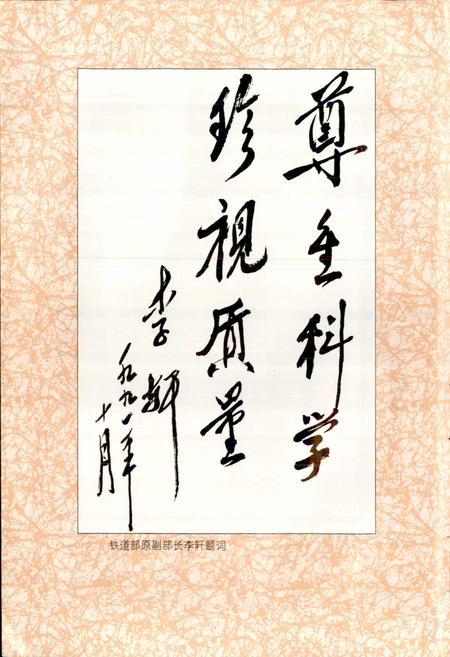 尊重科学
珍视质量
李轩
一九九一年
十月
铁道部原副部长李轩题词